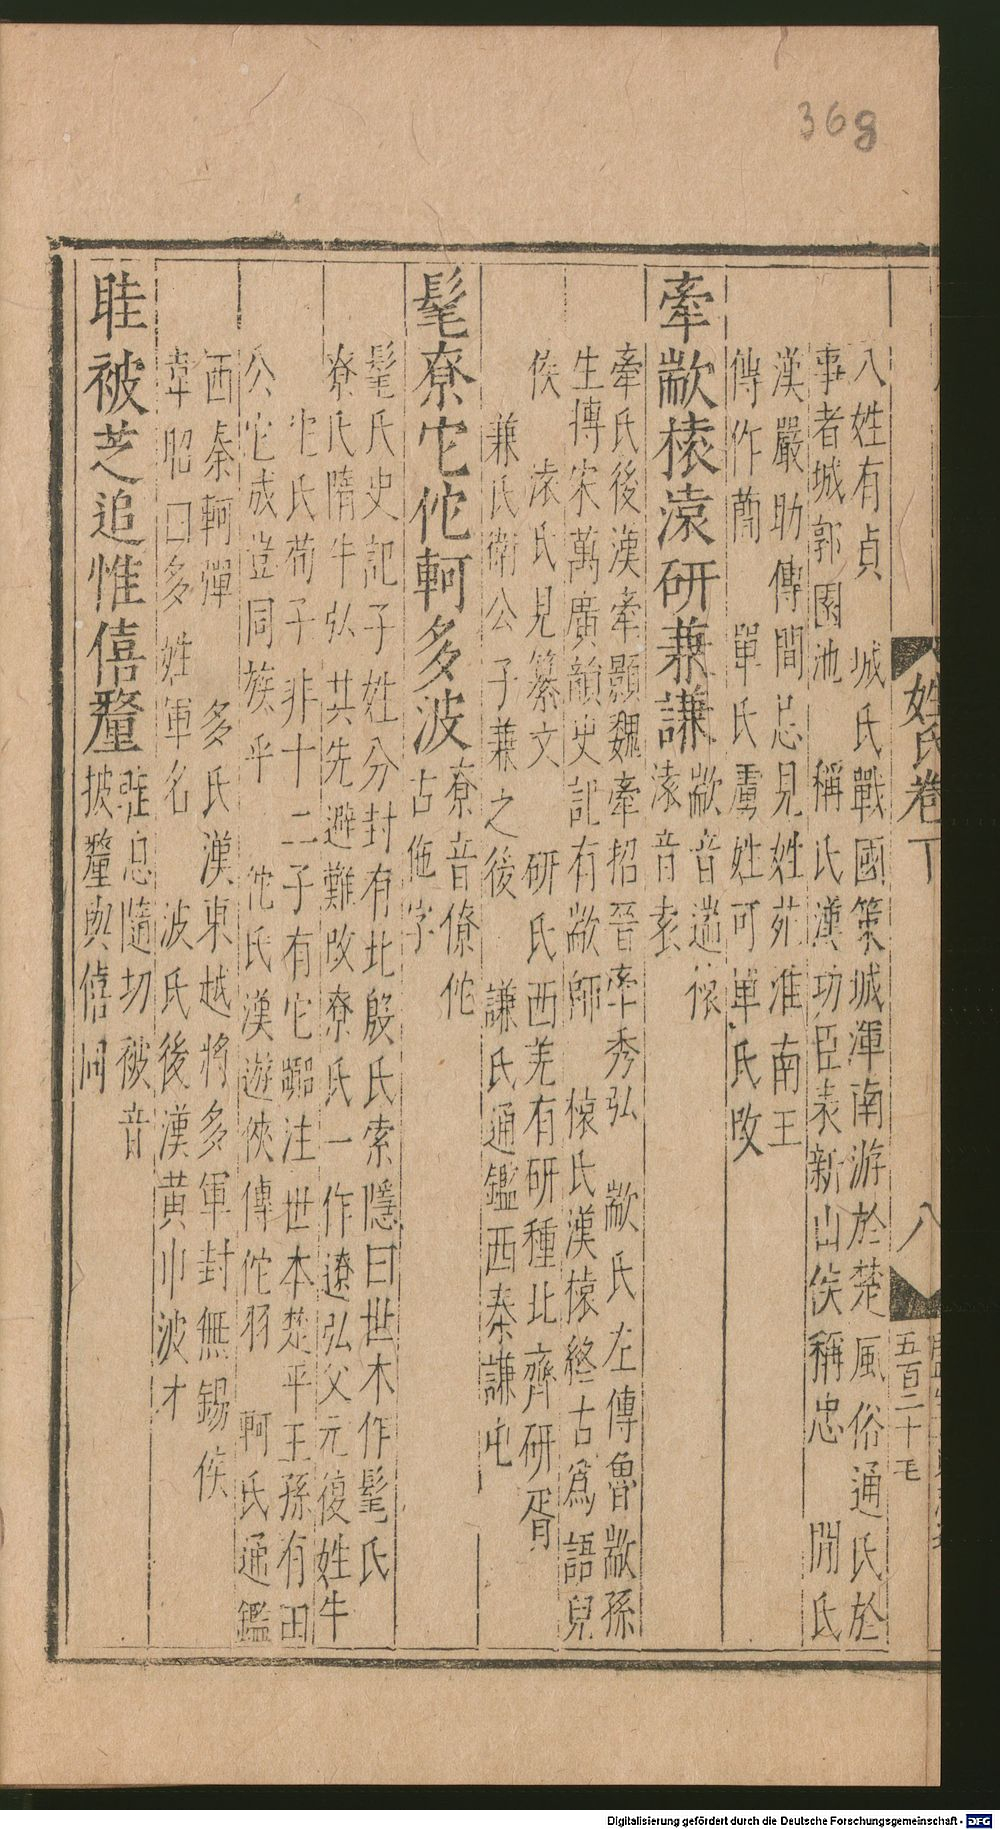 368
姓氏卷下
八
五百二十七
八姓有貞　城氏戰國策城渾南游於楚風俗通氏於
事者城郭園池　稱氏漢功臣表新山侯稱忠　閒氏
漢嚴助傳間忌見姓苑淮南王
傳作蕳　單氏虜姓可單氏改
牽敝榬溒研兼謙
敝音遄榬
溒音袁
牽氏後漢牽顥魏牽招晉牽秀弘　敝氏左傳魯敝孫
生搏宋萬廣韻史記有敝師　榬氏漢榬終古爲語兒
侯　溒氏見纂文　研氏西羌有研種北齊研胥
兼氏衛公子兼之後　謙氏通鑑西秦謙屯
髦尞它佗軻多波
尞音僚佗
古佨字
髦氏史記子姓分封有北殷氏索隱曰世本作髦氏
尞氏隋牛弘其先避難改尞氏一作遼弘父元復姓牛
它氏荀子非十二子有它嚻注世本楚平王孫有田
公它成豈同族乎　佗氏漢遊俠傳佗羽　軻氏通鑑
西秦軻殫　多氏漢東越將多軍封無錫侯
韋昭曰多姓軍名　波氏後漢黄巾波才
眭被芝追惟僖釐
眭息隨切被音
披釐與僖同
Digitalisierung gefördert durch die Deutsche Forschungsgemeinschaft - DFG